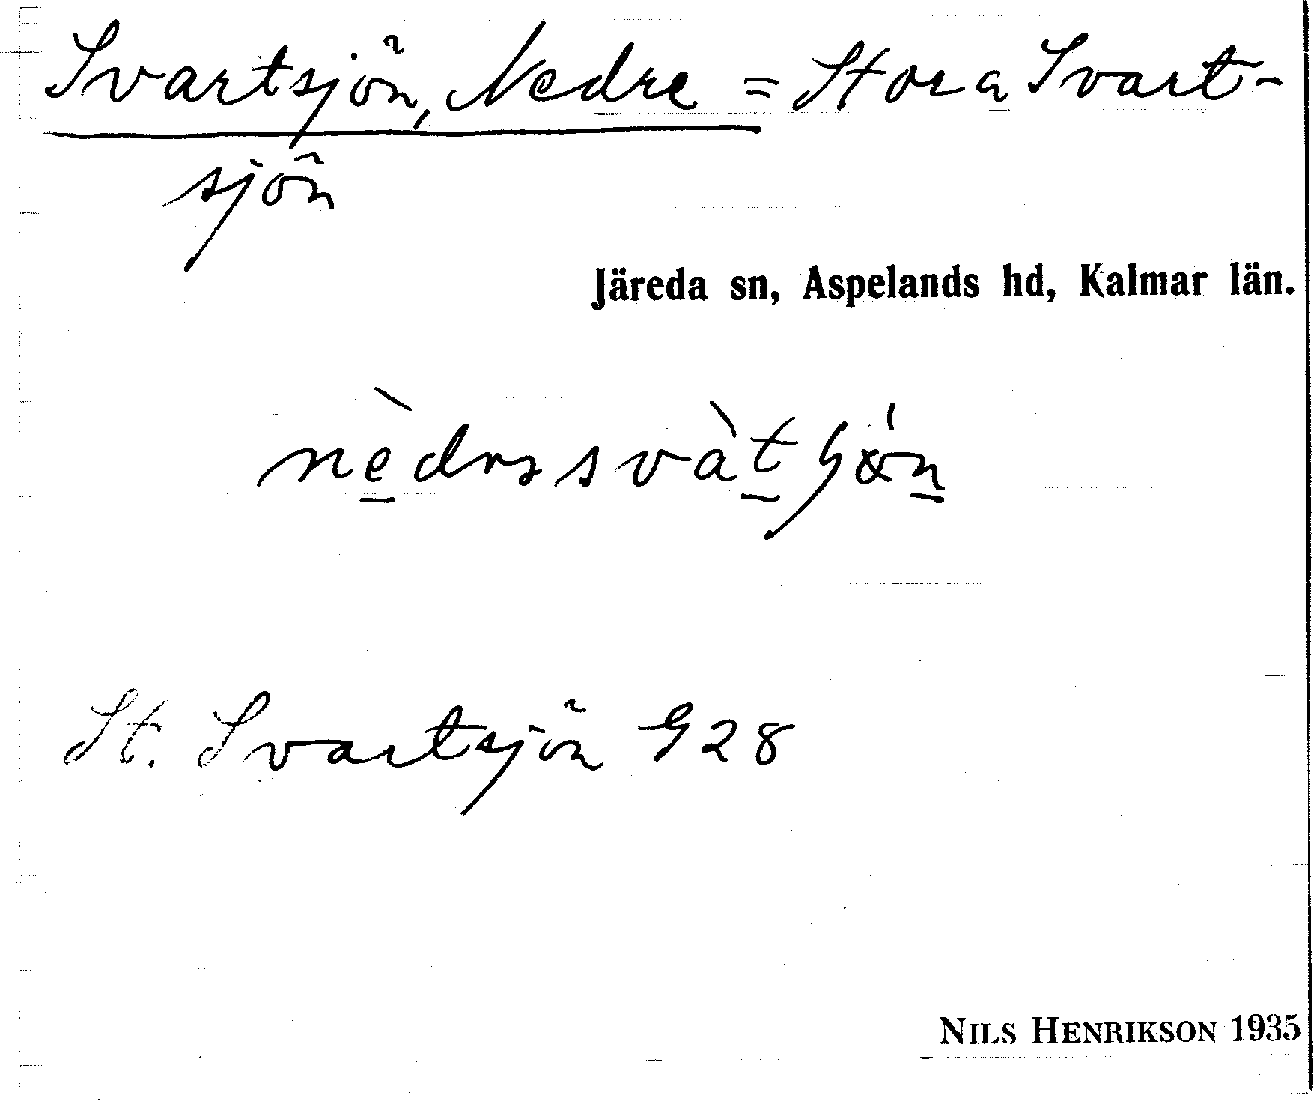 Svartsjön, Nedre = Stora Svart-
sjön
Järeda sn, Aspelands hd, Kalmar län.
St. Svartsjön G28
NILS HENRIKSON 1935